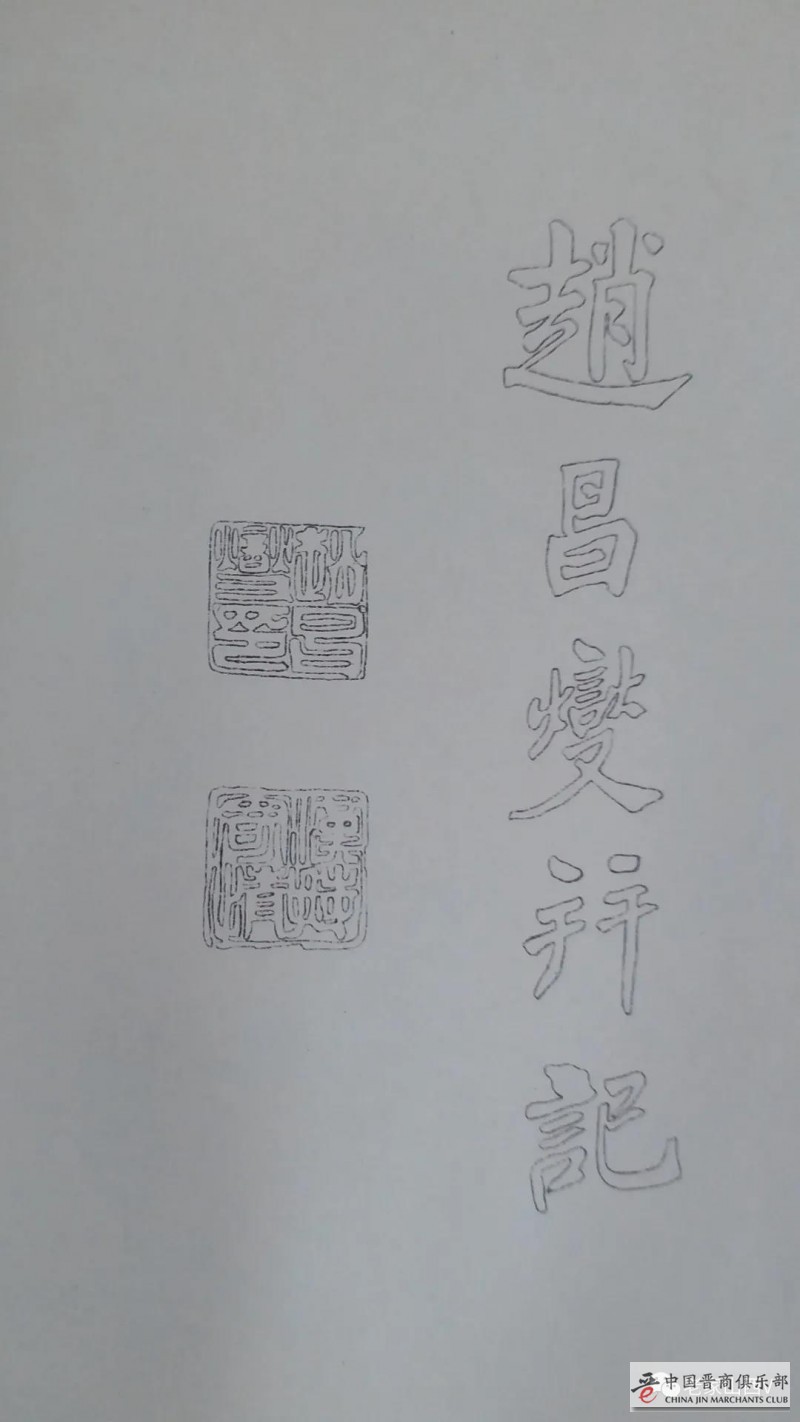 趙昌燮幷記
中国晋商俱乐部
CHINA JIN MARCHANTS CLUB